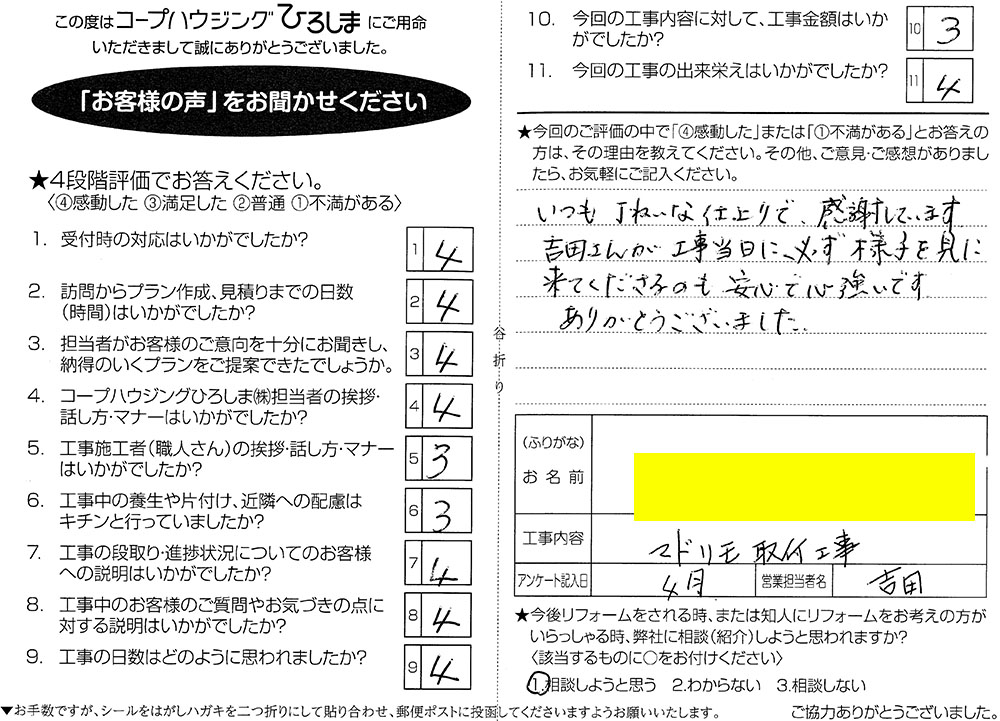 この度はコープハウジングひろしまにご用命
いただきまして誠にありがとうございました。
「お客様の声」をお聞かせください
★4段階評価でお答えください。
〈④感動した ③満足した ②普通 ①不満がある〉
1. 受付時の対応はいかがでしたか?
1 4
2. 訪問からプラン作成、見積りまでの日数
(時間)はいかがでしたか?
2 4
3. 担当者がお客様のご意向を十分にお聞きし、
納得のいくプランをご提案できたでしょうか。
3 4
4. コープハウジングひろしま㈱担当者の挨拶・
話し方・マナーはいかがでしたか?
4 4
5. 工事施工者(職人さん)の挨拶・話し方・マナー
はいかがでしたか?
5 3
6. 工事中の養生や片付け、近隣への配慮は
キチンと行っていましたか?
6 3
7. 工事の段取り・進捗状況についてのお客様
への説明はいかがでしたか?
7 4
8. 工事中のお客様のご質問やお気づきの点に
対する説明はいかがでしたか?
8 4
9. 工事の日数はどのように思われましたか?
9 4
▼お手数ですが、シールをはがしハガキを二つ折りにして貼り合わせ、郵便ポストに投函してくださいますようお願いいたします。
谷折り
10. 今回の工事内容に対して、工事金額はいか
がでしたか?
10 3
11. 今回の工事の出来栄えはいかがでしたか?
11 4
★今回のご評価の中で「④感動した」または「①不満がある」とお答えの
方は、その理由を教えてください。その他、ご意見・ご感想がありまし
たら、お気軽にご記入ください。
いつも丁ねいな仕上りで、感謝しています
吉田さんが工事当日に、必ず様子を見に
来てくださるのも安心で心強いです
ありがとうございました。
(ふりがな)
お名前
工事内容 マドリモ取付工事
アンケート記入日 4月 営業担当者名 吉田
★今後リフォームをされる時、または知人にリフォームをお考えの方が
いらっしゃる時、弊社に相談(紹介)しようと思われますか?
〈該当するものに○をお付けください〉
1.相談しようと思う 2.わからない 3.相談しない
ご協力ありがとうございました。